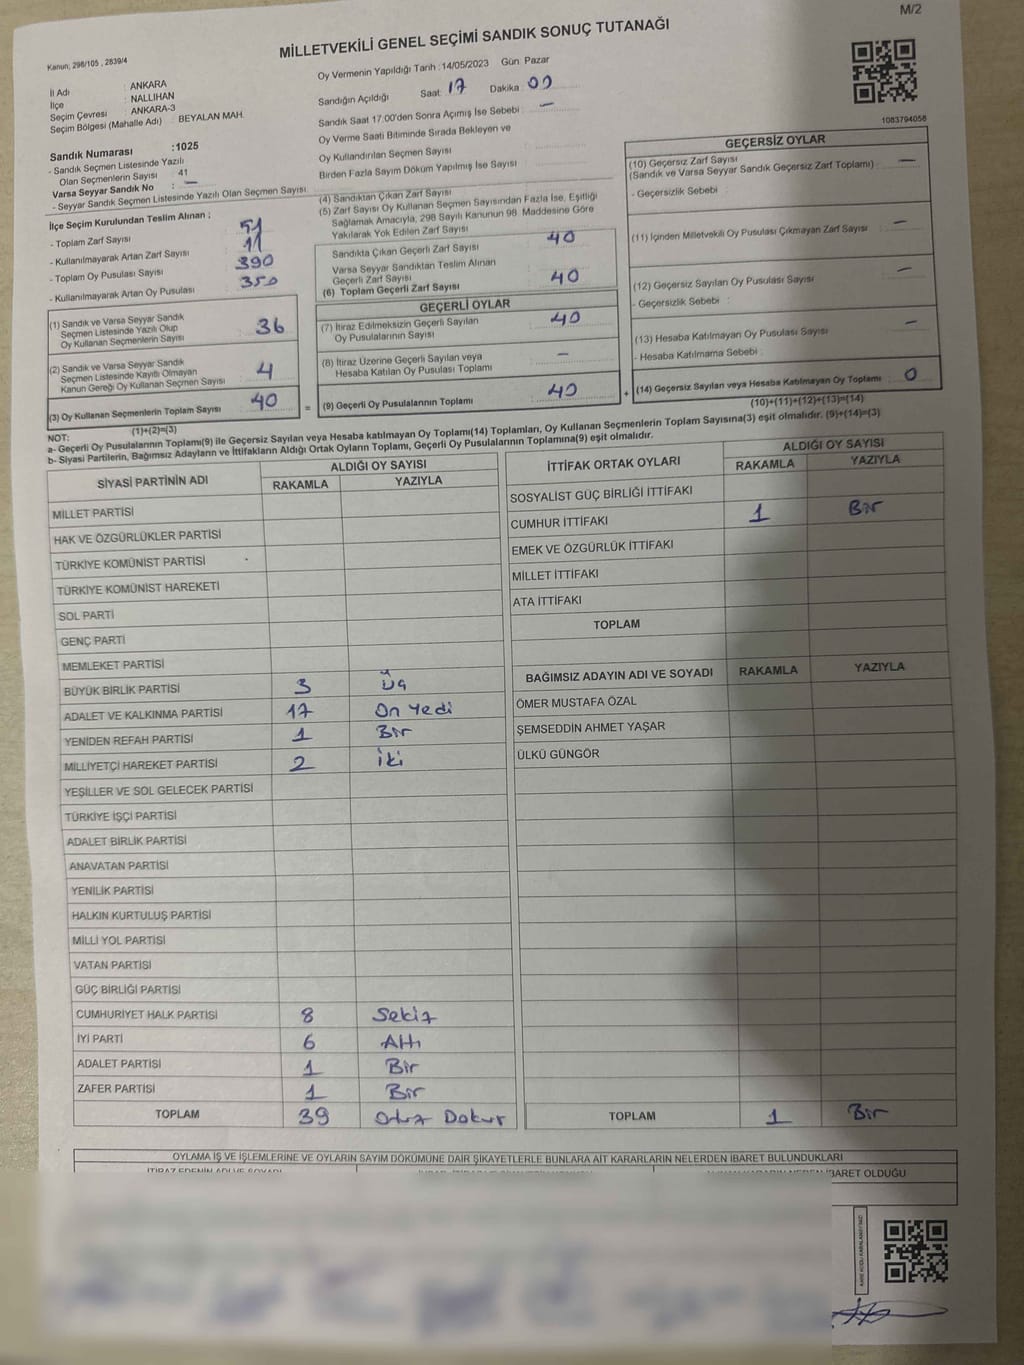 M/2
MİLLETVEKİLİ GENEL SEÇİMİ SANDIK SONUÇ TUTANAĞI
Kanun; 298/105 , 2839/4
Oy Vermenin Yapıldığı Tarih :14/05/2023 Gün Pazar
İl Adı : ANKARA
İlçe : NALLIHAN
Seçim Çevresi : ANKARA-3
Seçim Bölgesi (Mahalle Adı) : BEYALAN MAH.
Sandığın Açıldığı Saat: 17 Dakika: 00
Sandık Saat 17.00'den Sonra Açılmış İse Sebebi : —
Oy Verme Saati Bitiminde Sırada Bekleyen ve
Oy Kullandırılan Seçmen Sayısı :
Birden Fazla Sayım Döküm Yapılmış İse Sayısı :
1083794056
Sandık Numarası :1025
- Sandık Seçmen Listesinde Yazılı
Olan Seçmenlerin Sayısı : 41
Varsa Seyyar Sandık No : —
- Seyyar Sandık Seçmen Listesinde Yazılı Olan Seçmen Sayısı :
İlçe Seçim Kurulundan Teslim Alınan ;
- Toplam Zarf Sayısı : 51
- Kullanılmayarak Artan Zarf Sayısı : 11
- Toplam Oy Pusulası Sayısı : 390
- Kullanılmayarak Artan Oy Pusulası : 350
(1) Sandık ve Varsa Seyyar Sandık
Seçmen Listesinde Yazılı Olup
Oy Kullanan Seçmenlerin Sayısı : 36
(2) Sandık ve Varsa Seyyar Sandık
Seçmen Listesinde Kayıtlı Olmayan
Kanun Gereği Oy Kullanan Seçmen Sayısı : 4
(3) Oy Kullanan Seçmenlerin Toplam Sayısı : 40
(1)+(2)=(3)
(4) Sandıktan Çıkan Zarf Sayısı
(5) Zarf Sayısı Oy Kullanan Seçmen Sayısından Fazla İse, Eşitliği
Sağlamak Amacıyla, 298 Sayılı Kanunun 98. Maddesine Göre
Yakılarak Yok Edilen Zarf Sayısı
Sandıkta Çıkan Geçerli Zarf Sayısı : 40
Varsa Seyyar Sandıktan Teslim Alınan
Geçerli Zarf Sayısı
(6) Toplam Geçerli Zarf Sayısı : 40
GEÇERLİ OYLAR
(7) İtiraz Edilmeksizin Geçerli Sayılan
Oy Pusulalarının Sayısı : 40
(8) İtiraz Üzerine Geçerli Sayılan veya
Hesaba Katılan Oy Pusulası Toplamı : —
= (9) Geçerli Oy Pusulalarının Toplamı : 40 +
GEÇERSİZ OYLAR
(10) Geçersiz Zarf Sayısı
(Sandık ve Varsa Seyyar Sandık Geçersiz Zarf Toplamı) : —
- Geçersizlik Sebebi :
(11) İçinden Milletvekili Oy Pusulası Çıkmayan Zarf Sayısı : —
(12) Geçersiz Sayılan Oy Pusulası Sayısı : —
- Geçersizlik Sebebi :
(13) Hesaba Katılmayan Oy Pusulası Sayısı : —
- Hesaba Katılmama Sebebi :
(14) Geçersiz Sayılan veya Hesaba Katılmayan Oy Toplamı : 0
(10)+(11)+(12)+(13)=(14)
NOT:
a- Geçerli Oy Pusulalarının Toplamı(9) ile Geçersiz Sayılan veya Hesaba katılmayan Oy Toplamı(14) Toplamları, Oy Kullanan Seçmenlerin Toplam Sayısına(3) eşit olmalıdır. (9)+(14)=(3)
b- Siyasi Partilerin, Bağımsız Adayların ve İttifakların Aldığı Ortak Oyların Toplamı, Geçerli Oy Pusulalarının Toplamına(9) eşit olmalıdır.
SİYASİ PARTİNİN ADI ALDIĞI OY SAYISI
RAKAMLA YAZIYLA
MİLLET PARTİSİ
HAK VE ÖZGÜRLÜKLER PARTİSİ
TÜRKİYE KOMÜNİST PARTİSİ
TÜRKİYE KOMÜNİST HAREKETİ
SOL PARTİ
GENÇ PARTİ
MEMLEKET PARTİSİ
BÜYÜK BİRLİK PARTİSİ 3 Üç
ADALET VE KALKINMA PARTİSİ 17 On Yedi
YENİDEN REFAH PARTİSİ 1 Bir
MİLLİYETÇİ HAREKET PARTİSİ 2 İki
YEŞİLLER VE SOL GELECEK PARTİSİ
TÜRKİYE İŞÇİ PARTİSİ
ADALET BİRLİK PARTİSİ
ANAVATAN PARTİSİ
YENİLİK PARTİSİ
HALKIN KURTULUŞ PARTİSİ
MİLLİ YOL PARTİSİ
VATAN PARTİSİ
GÜÇ BİRLİĞİ PARTİSİ
CUMHURİYET HALK PARTİSİ 8 Sekiz
İYİ PARTİ 6 Altı
ADALET PARTİSİ 1 Bir
ZAFER PARTİSİ 1 Bir
TOPLAM 39 Otuz Dokuz
İTTİFAK ORTAK OYLARI ALDIĞI OY SAYISI
RAKAMLA YAZIYLA
SOSYALİST GÜÇ BİRLİĞİ İTTİFAKI
CUMHUR İTTİFAKI 1 Bir
EMEK VE ÖZGÜRLÜK İTTİFAKI
MİLLET İTTİFAKI
ATA İTTİFAKI
TOPLAM
BAĞIMSIZ ADAYIN ADI VE SOYADI RAKAMLA YAZIYLA
ÖMER MUSTAFA ÖZAL
ŞEMSEDDİN AHMET YAŞAR
ÜLKÜ GÜNGÖR
TOPLAM 1 Bir
OYLAMA İŞ VE İŞLEMLERİNE VE OYLARIN SAYIM DÖKÜMÜNE DAİR ŞİKAYETLERLE BUNLARA AİT KARARLARIN NELERDEN İBARET BULUNDUKLARI
İTİRAZ EDENİN ADI VE SOYADI
İBARET OLDUĞU